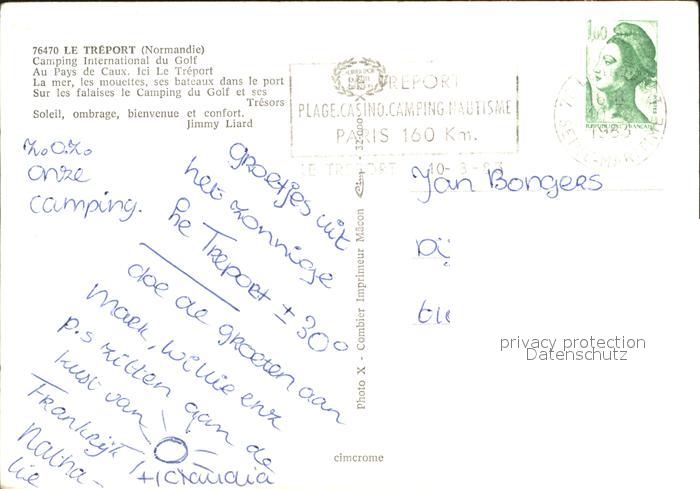 76470 LE TRÉPORT (Normandie)
Camping International du Golf
Au Pays de Caux. Ici Le Tréport
La mer, les mouettes, ses bateaux dans le port
Sur les falaises le Camping du Golf et ses
Trésors
Soleil, ombrage, bienvenue et confort.
Jimmy Liard
z.o.z.
onze
camping.
groetjes uit
het zonnige
Le Tréport ± 30°
doe de groeten aan
Mark, Willie enz
p.s zitten aan de
kust van
Frankrijk!
Natha-
lie
+ Claudia
TREPORT
PLAGE.CASINO.CAMPING.NAUTISME
PARIS 160 Km.
LE TREPORT 10-3-83
1,60
Jan Bongers
privacy protection
Datenschutz
Photo X - Combier Imprimeur Mâcon
cimcrome